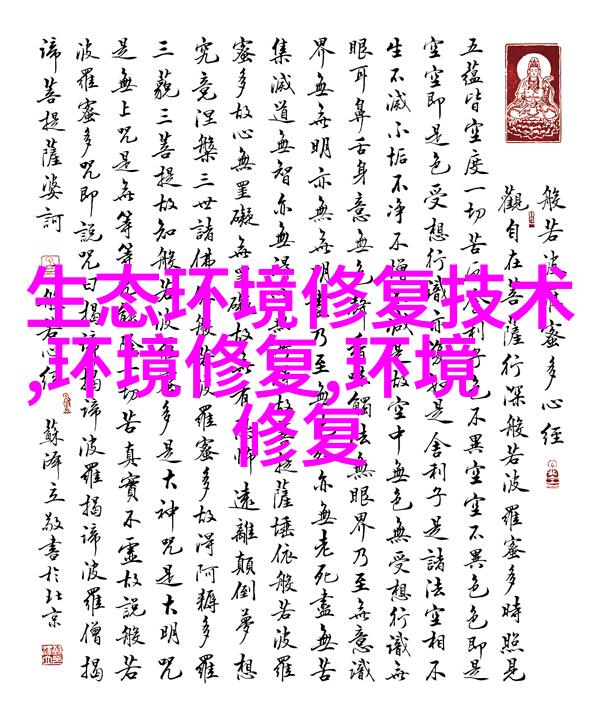 般若波羅蜜多心經
觀自在菩薩行深般若波羅蜜多時照見
五蘊皆空度一切苦厄舍利子色不異空空不異色色即是
空空即是色受想行識亦復如是舍利子是諸法空相不
生不滅不垢不净不增不減是故空中無色無受想行識無
眼耳鼻舌身意無色聲香味觸法無眼界乃至無意識
界無無明亦無無明盡乃至無老死亦無老死盡無苦
集滅道無智亦無得以無所得故菩提薩埵依般若波羅
蜜多故心無罣礙無罣礙故無有恐怖遠離顛倒夢想
究竟涅槃三世諸佛依般若波羅蜜多故得阿耨多羅
三藐三菩提故知般若波羅蜜多是大神咒是大明咒
是無上咒是無等等咒能除一切苦真實不虛故說般若
波羅蜜多咒即說咒曰揭諦揭諦波羅揭諦波羅僧揭
諦菩提薩婆訶 般若心經 蘇澤立敬書於北京
生态环境修复技术
,环境修复,环境
修复